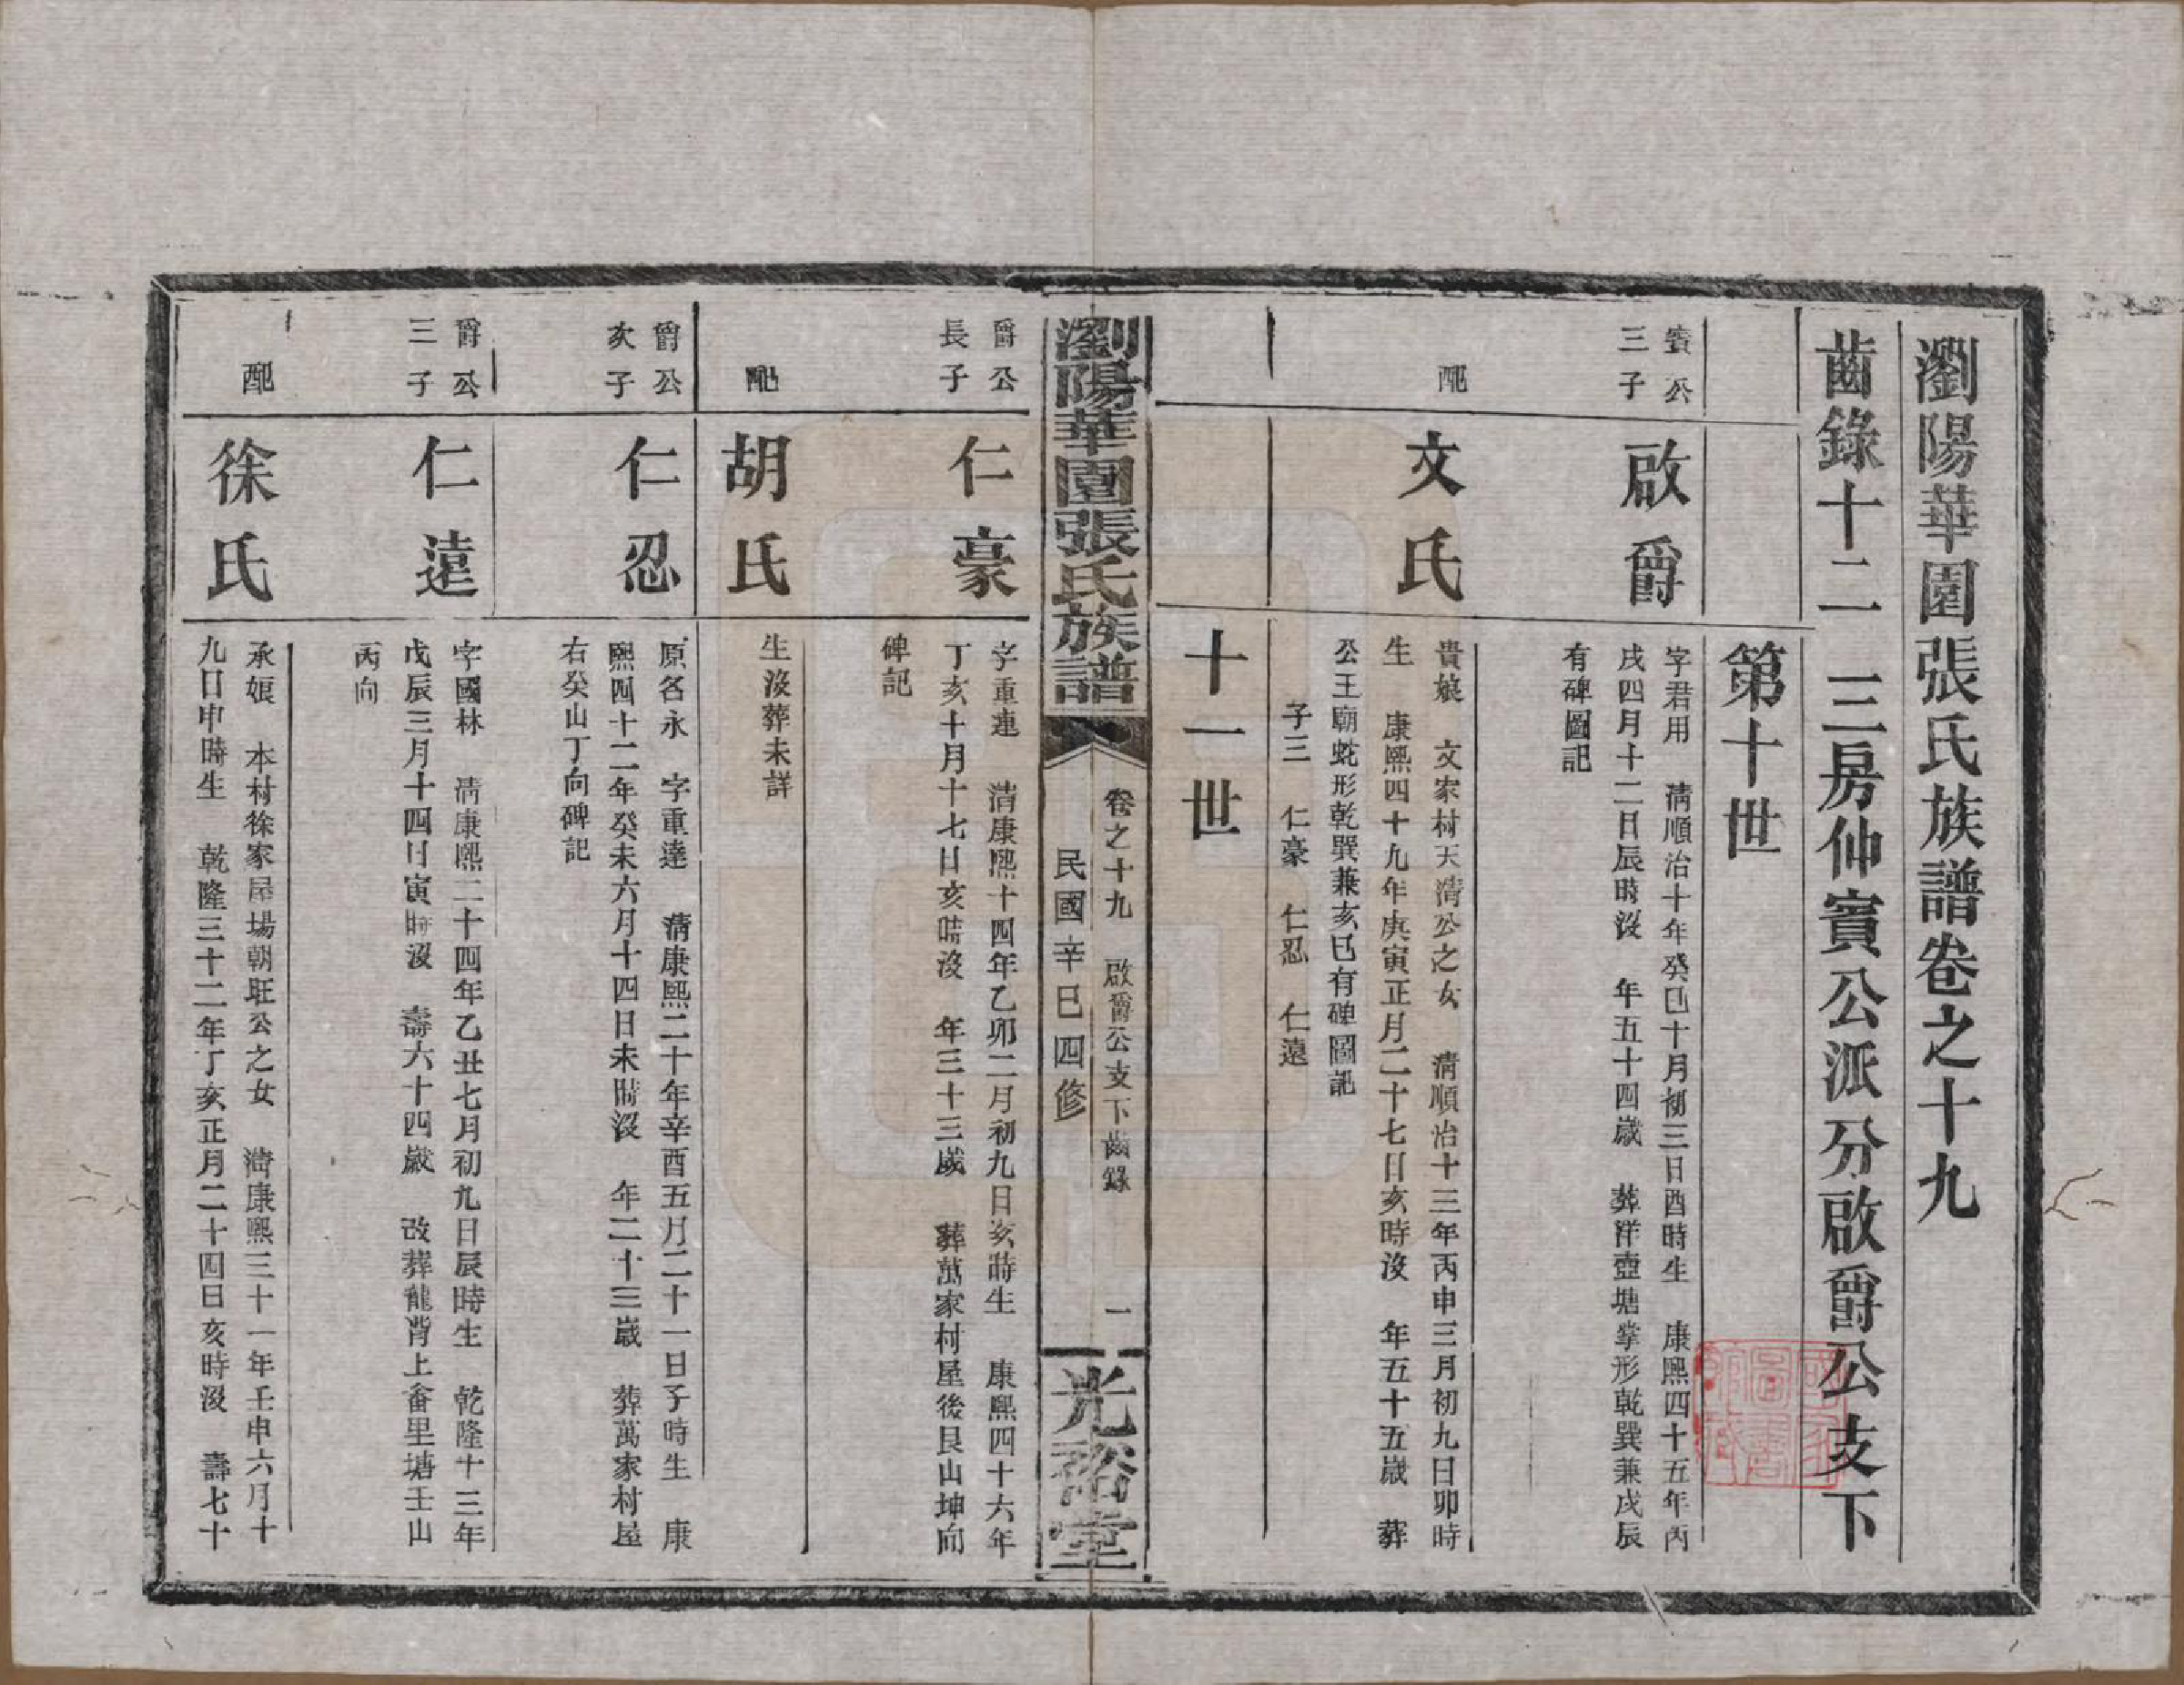 瀏陽華園張氏族譜卷之十九
齒錄十二 三房仲賓公派分啟爵公支下
第十世
賓公
三子
啟爵
字君用 清順治十年癸巳十月初三日酉時生 康熙四十五年丙
戌四月十二日辰時沒 年五十四歲 葬洋壺塘掌形乾巽兼戌辰
有碑圖記
配
文氏
貴娘 文家村天清公之女 清順治十三年丙申三月初九日卯時
生 康熙四十九年庚寅正月二十七日亥時沒 年五十五歲 葬
公王廟蛇形乾巽兼亥巳有碑圖記
子三 仁豪 仁忍 仁遠
十一世
瀏陽華園張氏族譜
卷之十九 啟爵公支下齒錄 一
民國辛巳四修
光裕堂
爵公
長子
仁豪
字重連 清康熙十四年乙卯二月初九日亥時生 康熙四十六年
丁亥十月十七日亥時沒 年三十三歲 葬萬家村屋後艮山坤向
碑記
配
胡氏
生沒葬未詳
爵公
次子
仁忍
原名永 字重達 清康熙二十年辛酉五月二十一日子時生 康
熙四十二年癸未六月十四日未時沒 年二十三歲 葬萬家村屋
右癸山丁向碑記
爵公
三子
仁遠
字國林 清康熙二十四年乙丑七月初九日辰時生 乾隆十三年
戊辰三月十四日寅時沒 壽六十四歲 改葬龍背上畬里塘壬山
丙向
配
徐氏
承娘 本村徐家屋場朝旺公之女 清康熙三十一年壬申六月十
九日申時生 乾隆三十二年丁亥正月二十四日亥時沒 壽七十